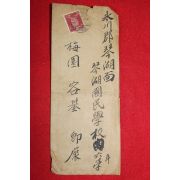 永川郡琴湖面
琴湖國民學校
梅園容基 卽展